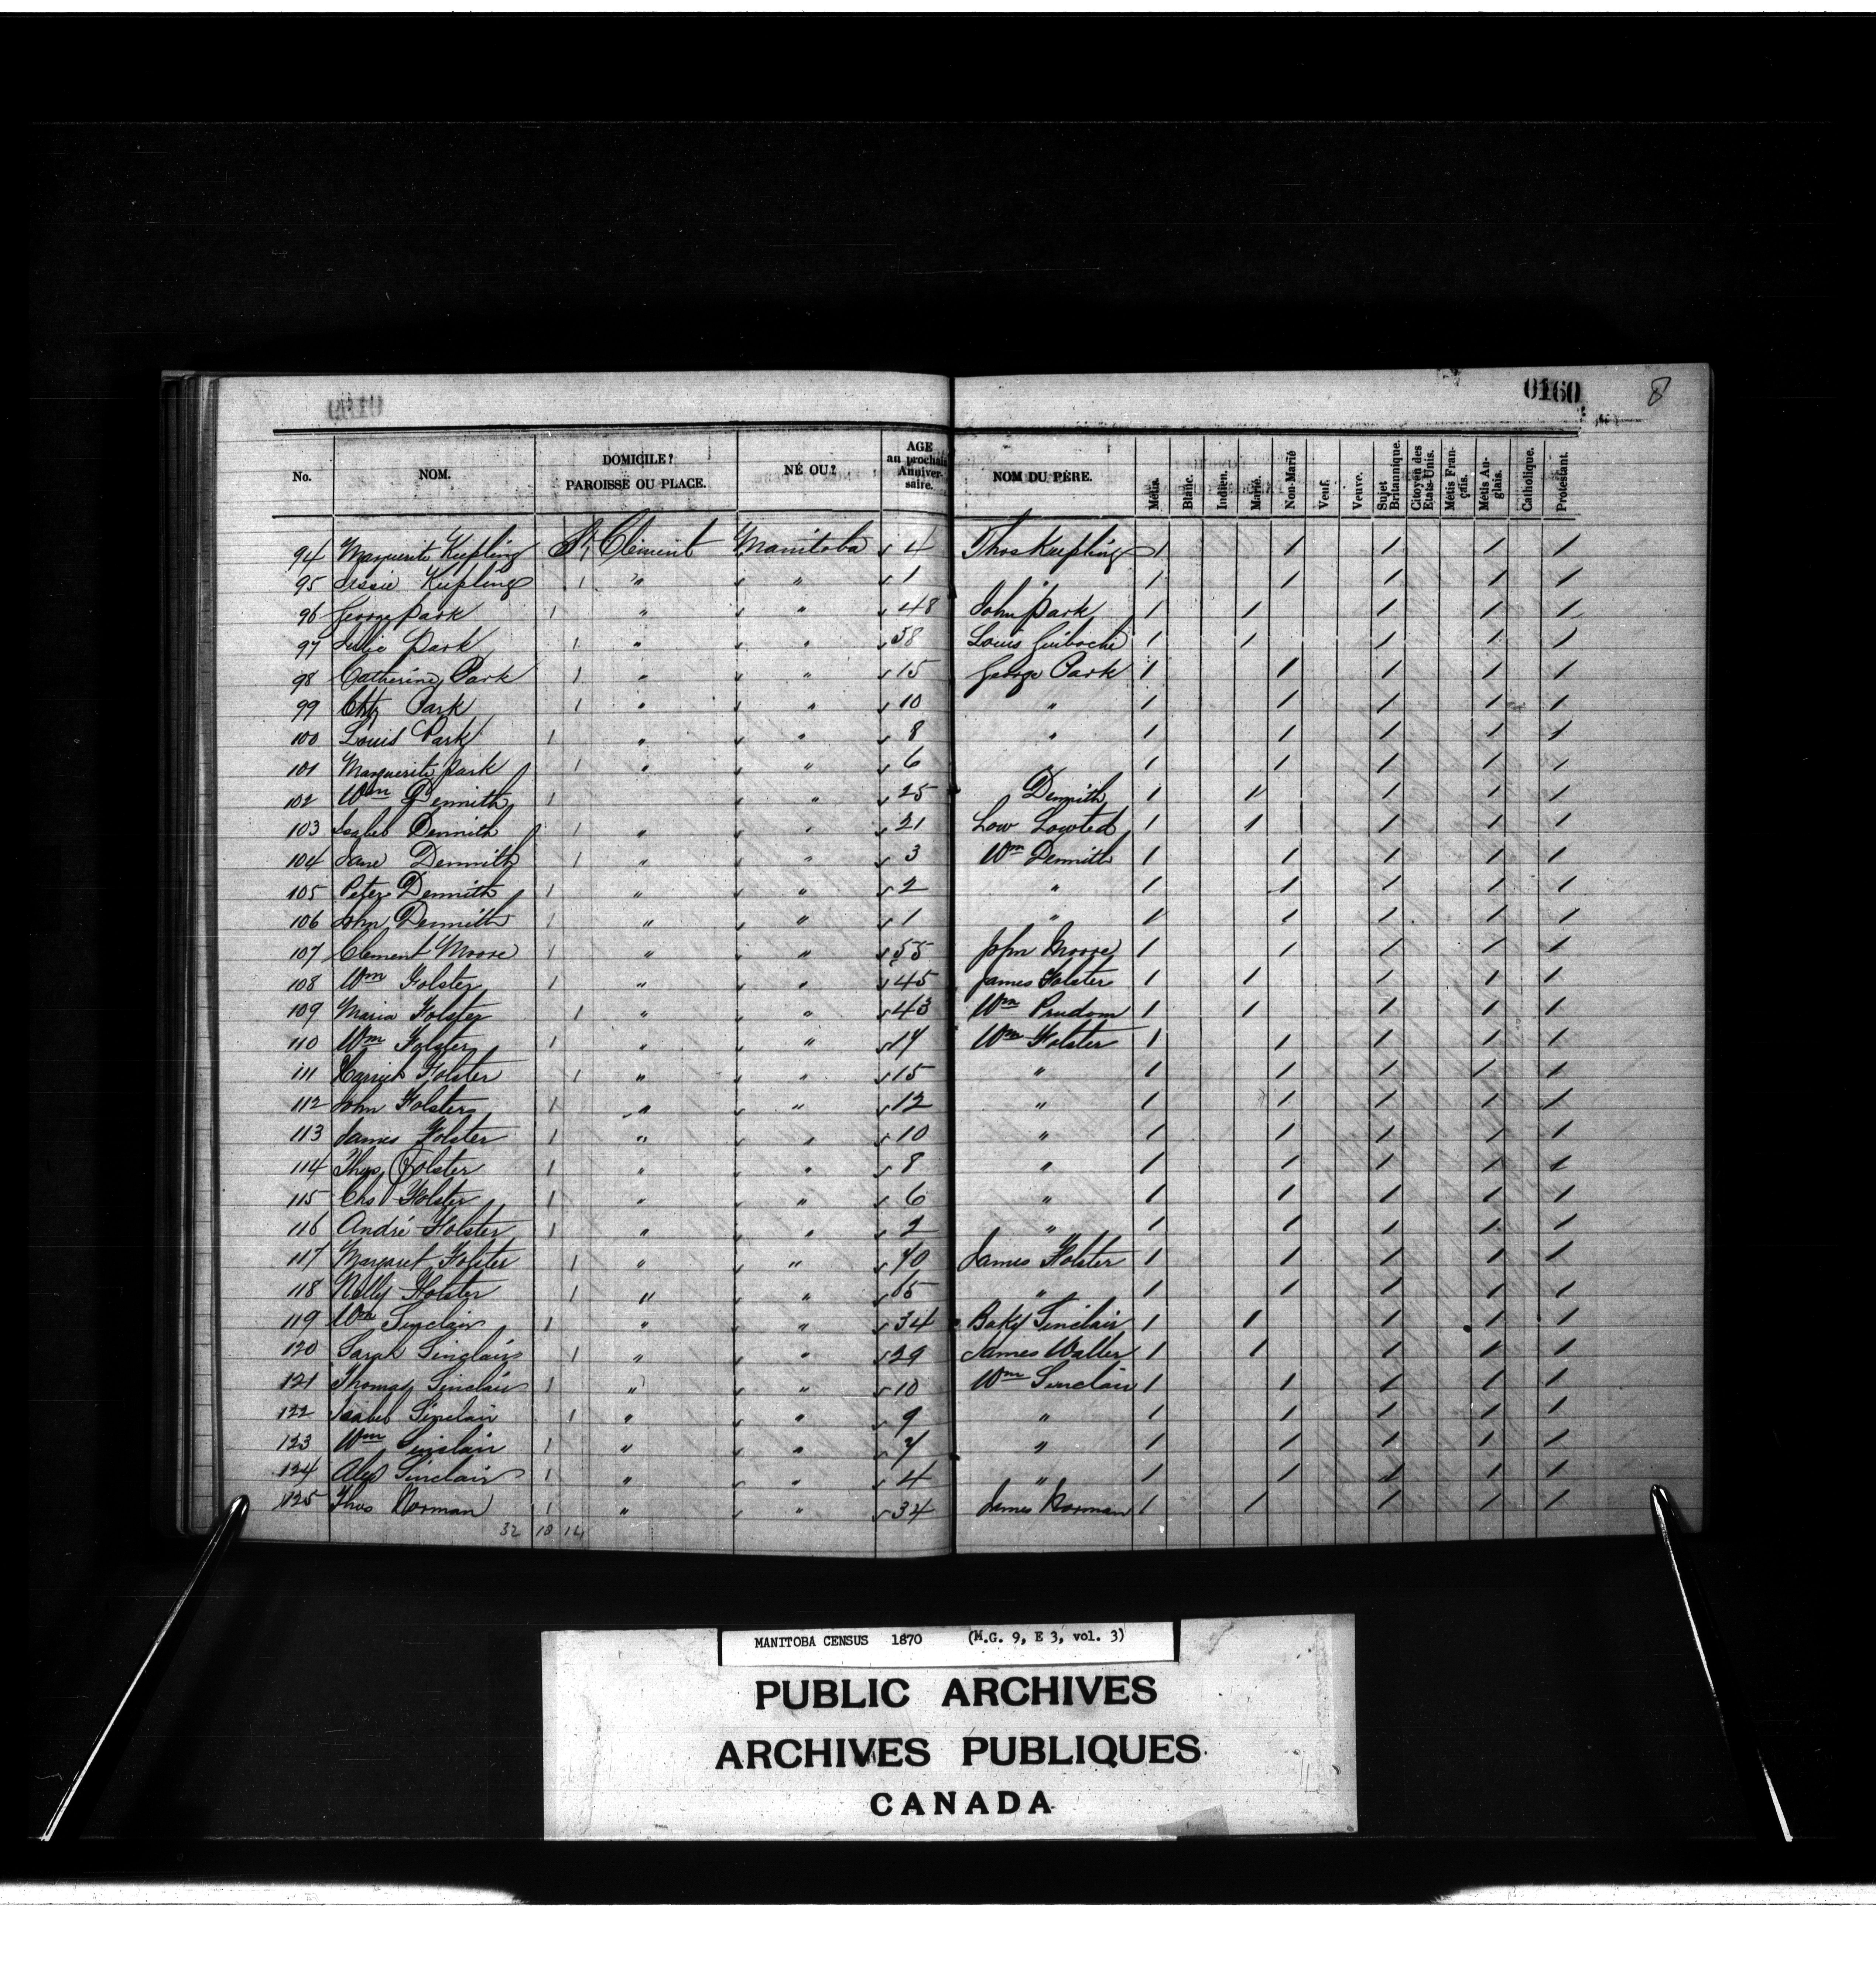 0160 8
No. NOM. DOMICILE? PAROISSE OU PLACE. NÉ OU? AGE au prochain Anniversaire. NOM DU PÈRE. Métis. Blanc. Indien. Marié. Non-Marié Veuf. Veuve. Sujet Britannique. Citoyen des Etats-Unis. Métis Français. Métis Anglais. Catholique. Protestant.
94 Marguerite Kiepling St Clement Manitoba 4 Thos Kiepling 1 1 1 1 1
95 Kiepling 1 " " 1 1 1 1 1 1
96 George Park 1 " " 48 John Park 1 1 1 1 1
97 Julie Park 1 " " 58 Louis Guiboche 1 1 1 1 1
98 Catherine Park 1 " " 15 George Park 1 1 1 1 1
99 Park 1 " " 10 " 1 1 1 1 1
100 Louis Park 1 " " 8 " 1 1 1 1 1
101 Marguerite Park 1 " " 6 1 1 1 1 1
102 Wm Dennith 1 " 25 Dennith 1 1 1 1 1
103 Isabel Dennith 1 " " 21 Low Lowted 1 1 1 1 1
104 Jane Dennith 1 " " 3 Wm Dennith 1 1 1 1 1
105 Peter Dennith 1 " " 2 " 1 1 1 1 1
106 John Dennith 1 " " 1 " 1 1 1 1 1
107 Clement Moore 1 " " 55 John Moore 1 1 1 1 1
108 Wm Folster 1 " " 45 James Folster 1 1 1 1 1
109 Maria Folster 1 " " 43 Wm Prudom 1 1 1 1 1
110 Wm Folster 1 " " 17 Wm Folster 1 1 1 1 1
111 Harriet Folster 1 " " 15 " 1 1 1 1 1
112 John Folster 1 " " 12 " 1 1 1 1 1
113 James Folster 1 " " 10 " 1 1 1 1 1
114 Thos Folster 1 " " 8 " 1 1 1 1 1
115 Chs Folster 1 " " 6 " 1 1 1 1 1
116 André Folster 1 " " 2 " 1 1 1 1 1
117 Margaret Folster 1 " " 70 James Folster 1 1 1 1 1
118 Nelly Folster 1 " " 65 " 1 1 1 1 1
119 Wm Sinclair 1 " " 34 Baky Sinclair 1 1 1 1 1
120 Sarah Sinclair 1 " " 29 James Waller 1 1 1 1 1
121 Thomas Sinclair 1 " " 10 Wm Sinclair 1 1 1 1 1
122 Isabel Sinclair 1 " " 9 " 1 1 1 1 1
123 Wm Sinclair 1 " " 7 " 1 1 1 1 1
124 Alex Sinclair 1 " " 4 " 1 1 1 1 1
125 Thos Norman 1 " " 34 James Norman 1 1 1 1 1
32 18 14
MANITOBA CENSUS 1870 (M.G. 9, E 3, vol. 3)
PUBLIC ARCHIVES
ARCHIVES PUBLIQUES
CANADA